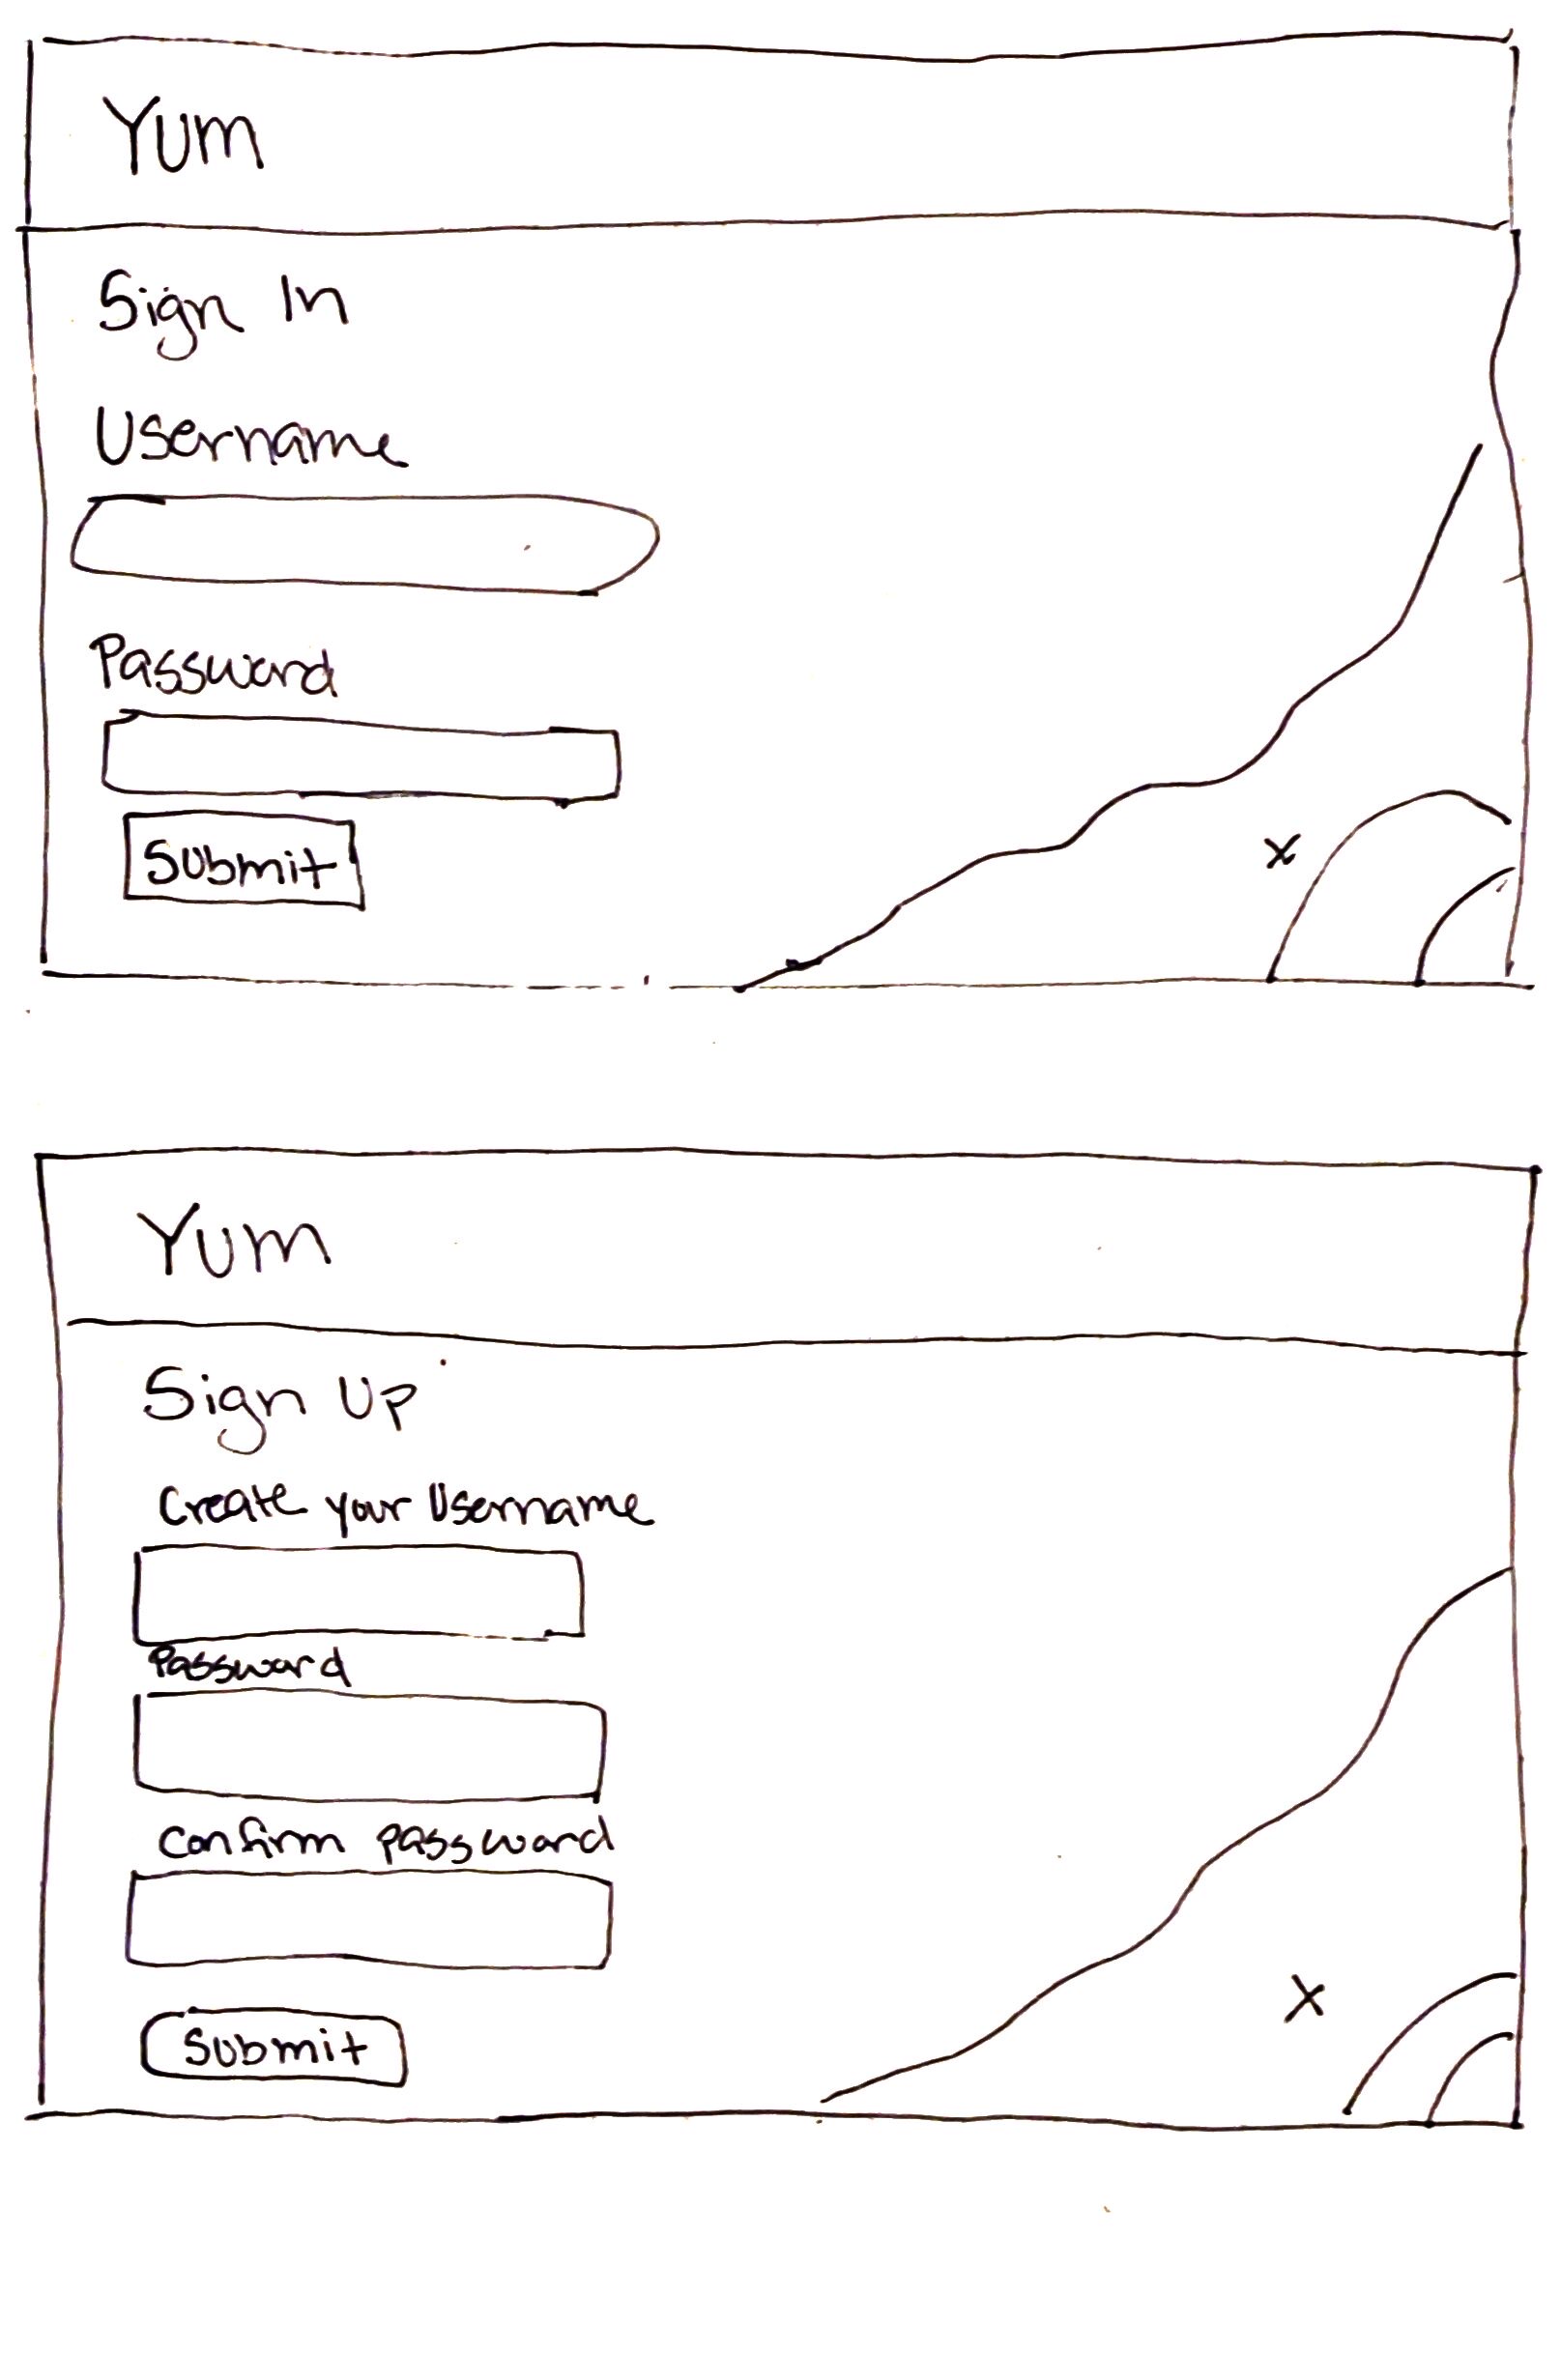 Yum
Sign In
Username
Password
Submit
x
Yum
Sign Up
Create your Username
Password
Confirm password
Submit
x